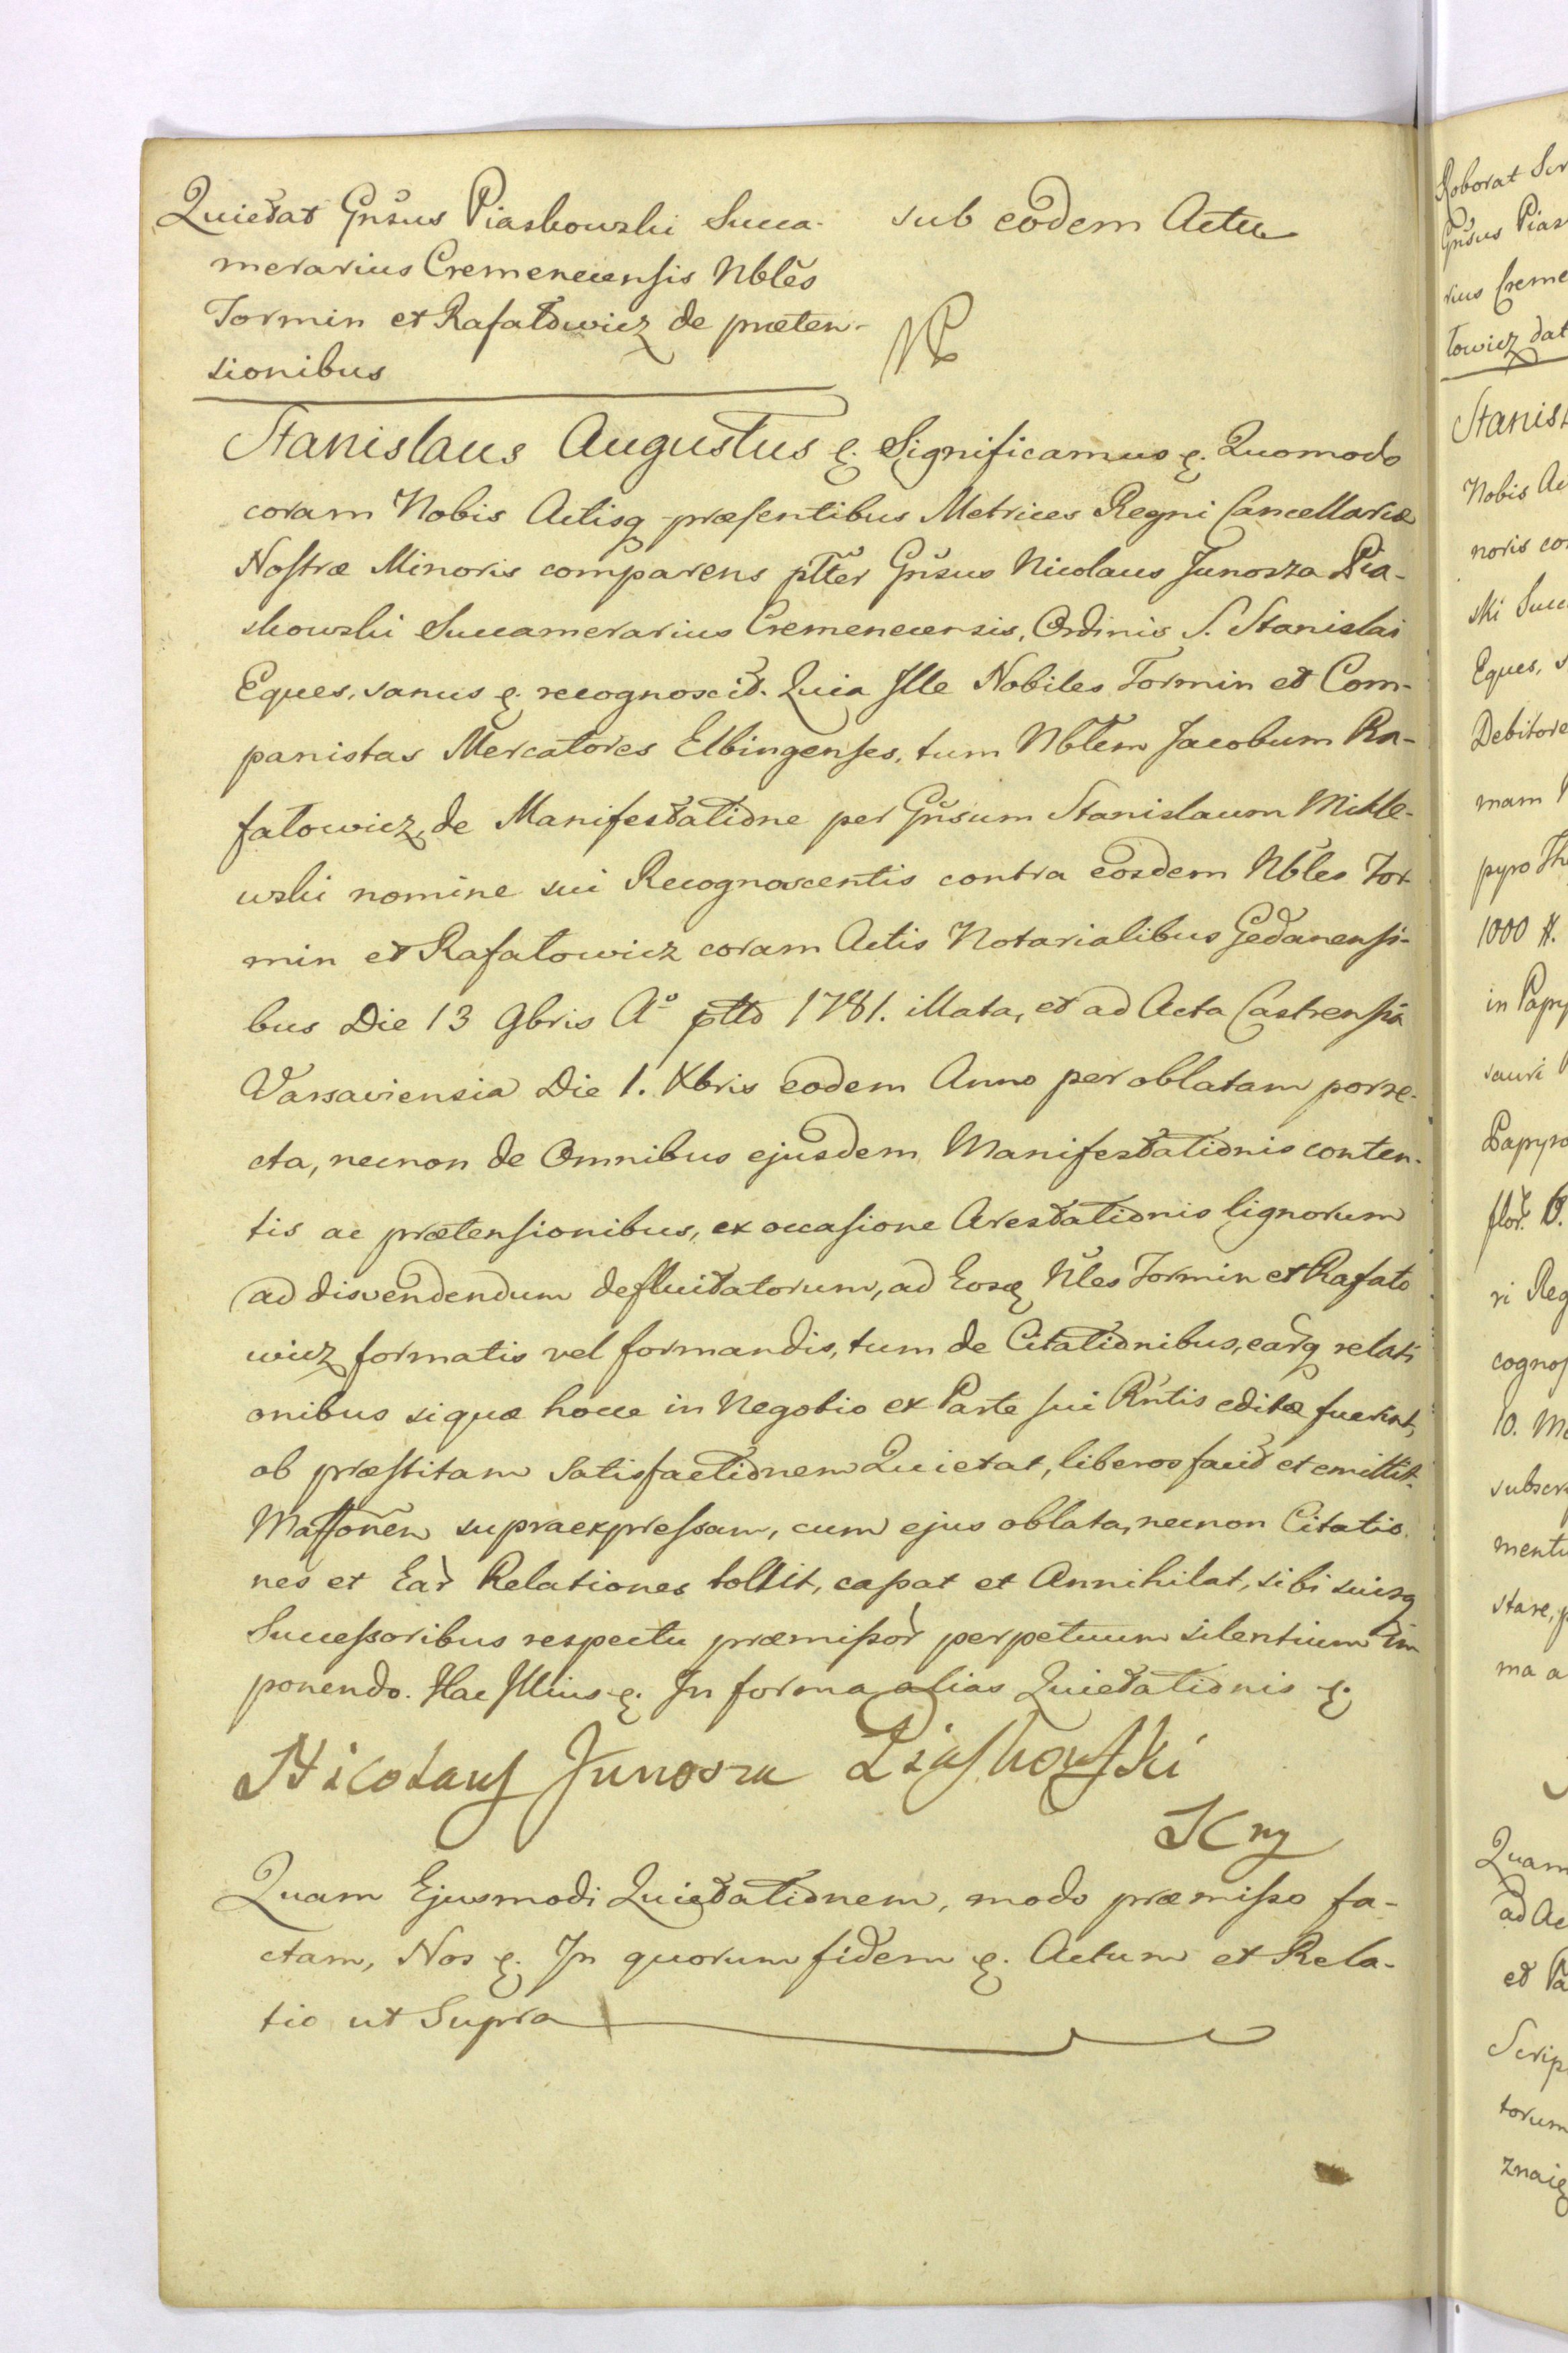 Quietat Gnsus Piaskowski Succa-
merarius Cremenecensis Nbles
Tormin et Rafałowicz de præten-
sionibus
sub eodem Actu
Stanislaus Augustus &. Significamus &. Quomodo
coram Nobis Actisq præsentibus Metrices Regni Cancellariæ
Nostræ Minoris comparens pltter Gnsus Nicolaus Junosza Pia-
skowski Succamerarius Cremenecensis, Ordinis S. Stanislai
Eques, sanus &. recognoscit. Quia Ille Nobiles Tormin et Com-
panistas Mercatores Elbingenses, tum Nbtem Jacobum Ra-
fałowicz, de Manifestatione per Gnsum Stanislaum Mikle-
wski nomine sui Recognoscentis contra eosdem Nbles Tor-
min et Rafałowicz coram Actis Notarialibus Gedanensi-
bus Die 13 9bris Aº ptto 1781. illata, et ad Acta Castrensia
Varsaviensia Die 1. Xbris eodem Anno per oblatam porre-
cta, necnon de Omnibus ejusdem Manifestationis conten-
tis ac prætensionibus, ex occasione Arestationis lignorum
ad disvendendum defluitatorum, ad Eosq Nles Tormin et Rafało
wicz formatis vel formandis, tum de Citationibus, earq relati
onibus si quæ hocce in Negotio ex Parte sui Rntis editæ fuerint,
ob præstitam Satisfactionem Quietat, liberos facit et emittit.
Mattonen supraexpressam, cum ejus oblata, necnon Citatio
nes et Ear Relationes tollit, cassat et Annihilat, sibi suisq
Successoribus respectu præmissor perpetuum silentium im
ponendo. Hac Illius &. In forma alias Quietationis &.
Nicolaus Junosza Piaskowski
Quam Ejusmodi Quietationem, modo præmisso fa-
ctam, Nos &. In quorum fidem &. Actum et Rela-
tio ut Supra
Roborat Scr
Gnsus Pias
rius Creme
łowicz dat
Stanisl
Nobis Ac
noris co
ski Succ
Eques, s
Debitore
mam
pyro Th
1000 #.
in Papy
sauri
Papyro
flor. 6.
ri Reg
cognos
10. Ma
subscr
mentu
stare, p
ma a
Quam
ad Ac
et Pa
Scrip
torum
znaię